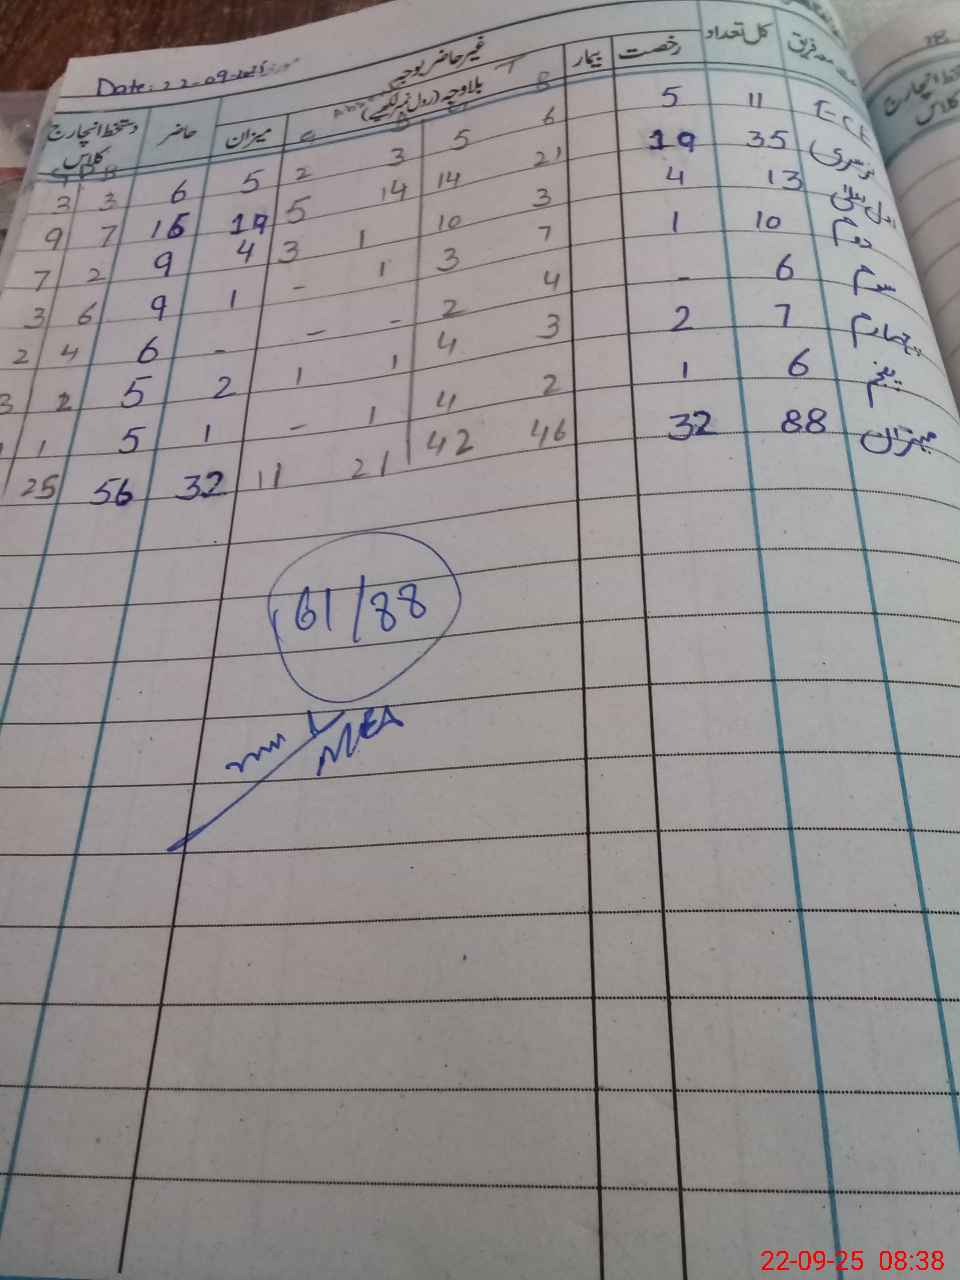 Date: 22-09-2025
کل تعداد رخصت بیمار غیر حاضر بوجہ
بلاوجہ (رول نمبر لکھیے) میزان حاضر دستخط انچارج کلاس
T B
G B G B
E.C.E 11 5 6 5 3 2 5 6 3 3
نرسری 35 19 21 14 14 5 19 16 7 9
13 4 3 10 1 3 4 9 2 7
دوم 10 1 7 3 1 - 1 9 6 3
سوم 6 - 4 2 - - - 6 4 2
چہارم 7 2 3 4 1 1 2 5 2 3
پنجم 6 1 2 4 1 - 1 5 1
میزان 88 32 46 42 21 11 32 56 25
61/88
MEA
دستخط انچارج
کلاس
22-09-25 08:38